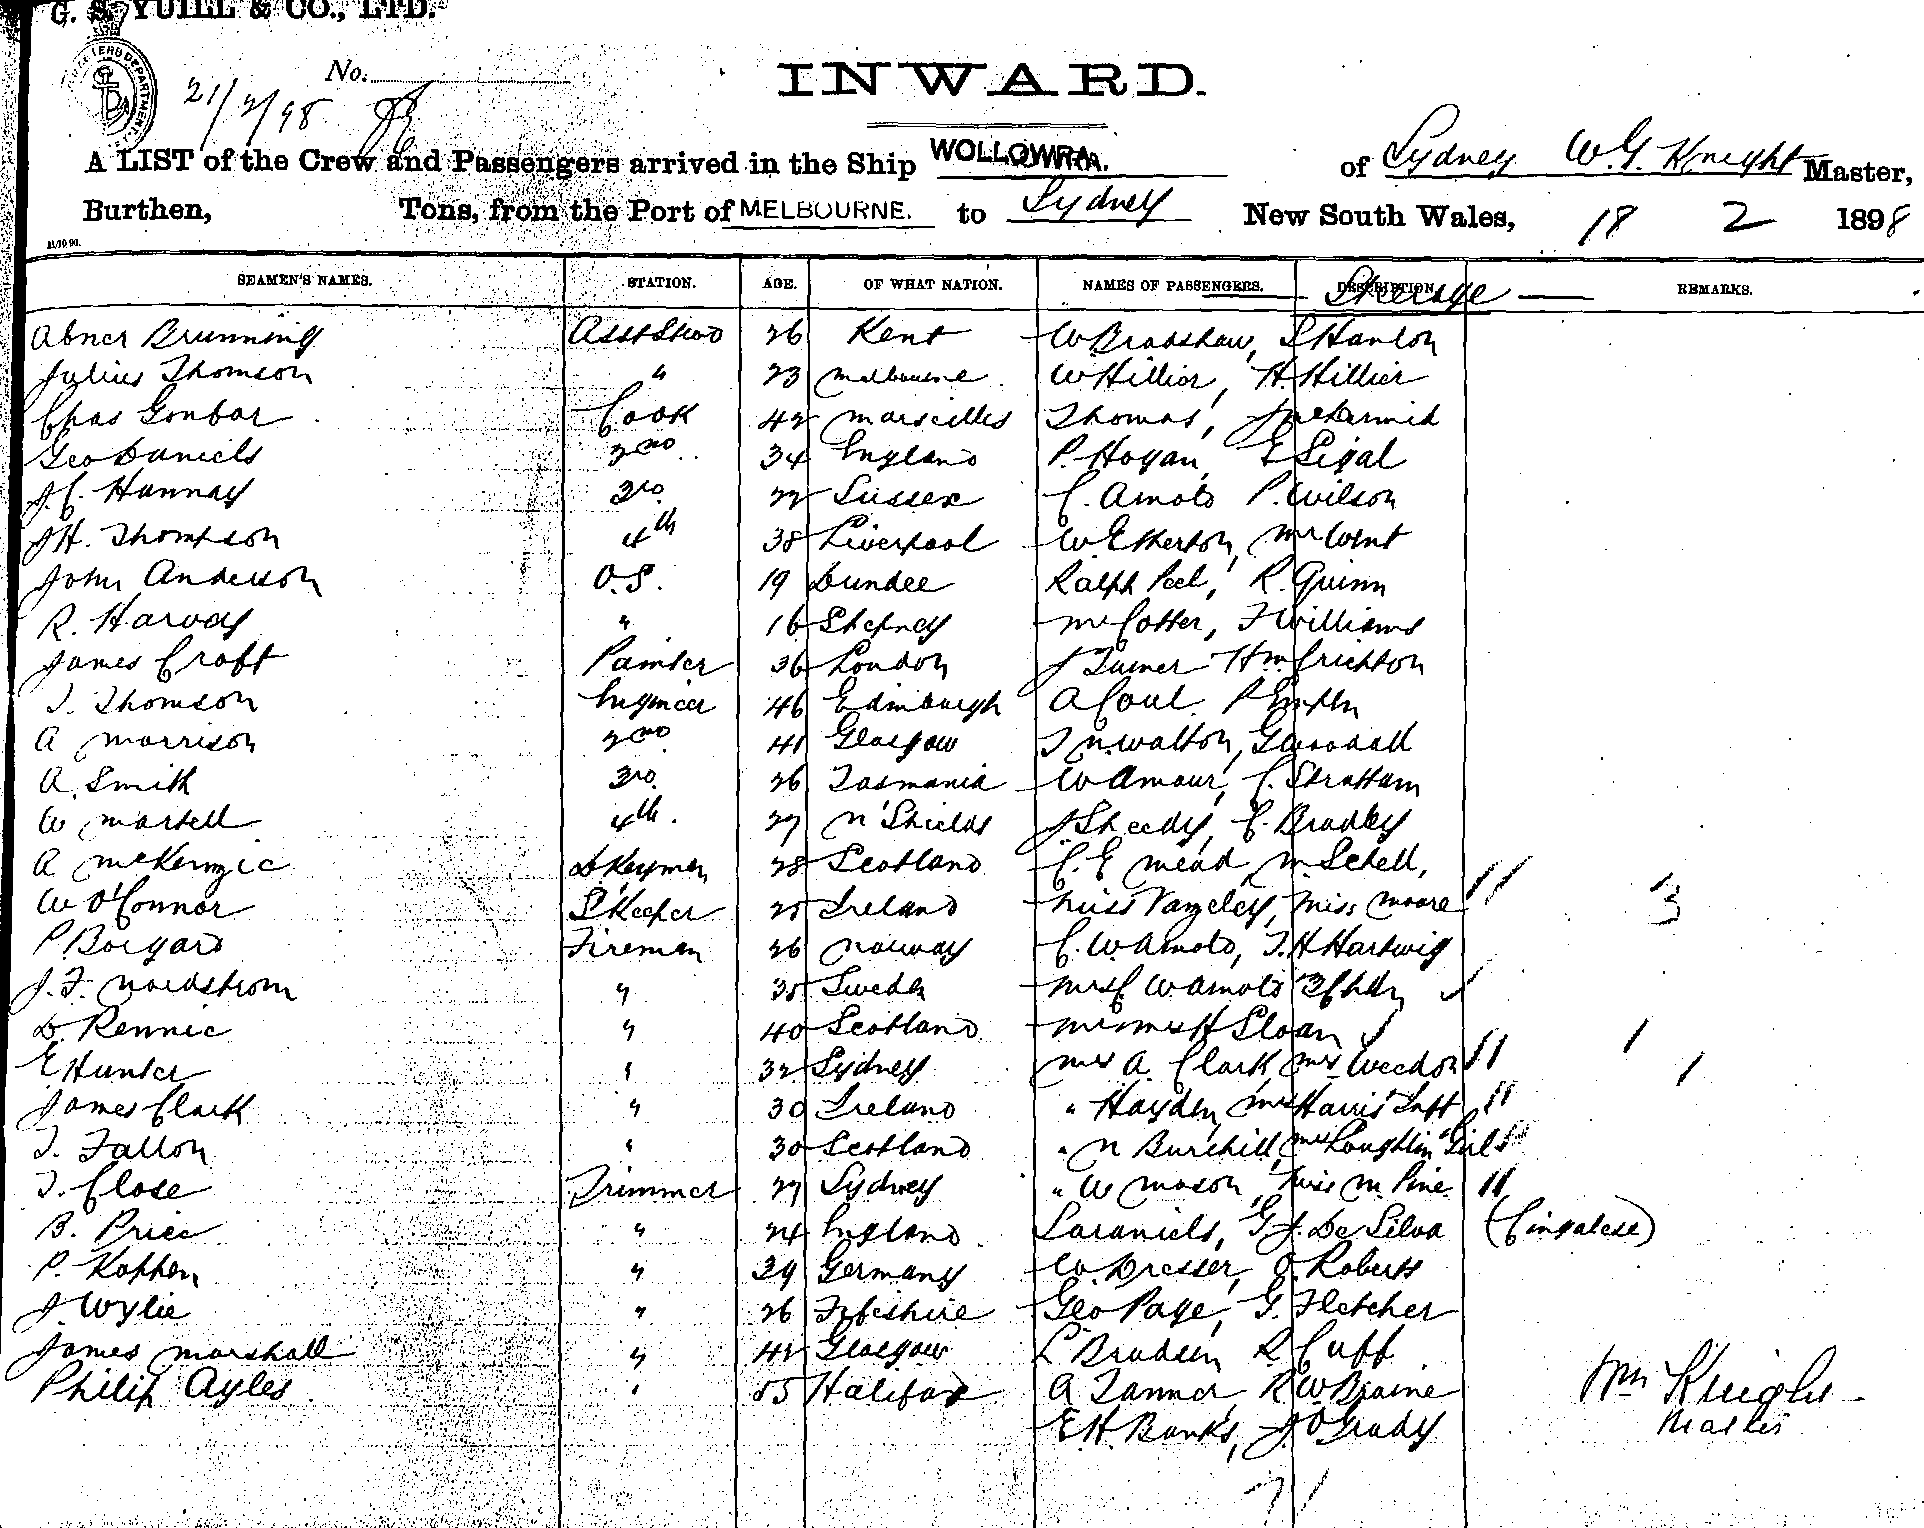 G. S. YUILL & CO., LTD.
No.
INWARD.
21/2/98
A LIST of the Crew and Passengers arrived in the Ship WOLLOWRA. of Sydney W.G. Knight Master,
Burthen, Tons, from the Port of MELBOURNE. to Sydney New South Wales, 18 2 1898
SEAMEN'S NAMES. STATION. AGE. OF WHAT NATION. NAMES OF PASSENGERS. DESCRIPTION. Steerage REMARKS.
Abner Brunning Asst Stwd 26 Kent W Bradshaw, S Hanlon
Julius Thomson " 23 Melbourne W Hillier, H Hillier
Chas Gonbar Cook 42 Marseilles Thomas,
Geo Daniels 2nd 34 England P. Hogan, E Sigal
J.C. Hannay 3rd 22 Sussex C. Arnold P. Wilson
J H. Thompson 4th 38 Liverpool W. Etherton, Mr Went
John Anderson O.S. 19 Dundee Ralph Peel, R. Quinn
R. Harvey " 16 Stepney McCotter, F Williams
James Croft Painter 36 London J Turner Hm Crichton
T. Thomson Engineer 46 Edinburgh A Coul.
A Morrison 2nd 41 Glasgow T N. Walton, G Woodall
A. Smith 3rd 26 Tasmania W Amour, C. Strattam
W Martell 4th. 27 N Shields J Sheedy, C. Bradley
A McKenzie Dkeyman 28 Scotland C. E Mead, M. Schell,
W O'Connor S'Keeper 25 Ireland Miss Vangeley, Miss Moore 3
P Borgard Fireman 26 Norway C. W. Arnold, T. H Hartwig
J. F. Nordstrom " 35 Sweden Mrs C W Arnold 3 Chdn
D Rennie " 40 Scotland Mr Mrs H Sloan
E Hunter " 32 Sydney Mrs A. Clark Mrs Weedon
James Clark " 30 Ireland " Hayden, Mrs Harris Inft
T. Fallon " 30 Scotland " N Burchill, Mrs Loughlin Girls
T. Close Trimmer 27 Sydney " W Mason, Miss M. Pine
B. Price " 24 England Saraniels, G. J. De Silva (Cingalese)
P. Koppen " 39 Germany W. Dresser, O. Roberts
J Wylie " 26 Fifeshire Geo Page, G. Fletcher
James Marshall " 42 Glasgow L Brudsen R Cuff
Philip Ayles " 55 Halifax A Tanner, R W Braine Wm Knight
E H. Banks, J O'Grady Master
71